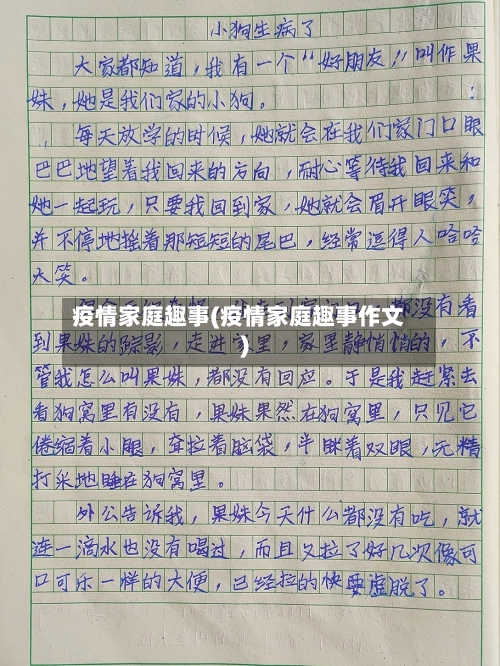 小狗生病了
大家都知道，我有一个“好朋友”叫作果
妹，她是我们家的小狗。
每天放学的时候，她就会在我们家门口眼
巴巴地望着我回来的方向，耐心等待我回来和
她一起玩，只要我回到家，她就会眉开眼笑，
并不停地摇着那短短的尾巴，经常逗得人哈哈
大笑。
都没有看
疫情家庭趣事(疫情家庭趣事作文
)
到果妹的踪影，走进家里，家里静悄悄的，不
管我怎么叫果妹，都没有回应。于是我赶紧去
看狗窝里有没有，果妹果然在狗窝里，只见它
倦缩着小腿，耷拉着脑袋，半眯着双眼，无精
打采地睡在狗窝里。
外公告诉我，果妹今天什么都没有吃，就
连一滴水也没有喝过，而且又拉了好几次像可
口可乐一样的大便，已经拉的快要虚脱了。